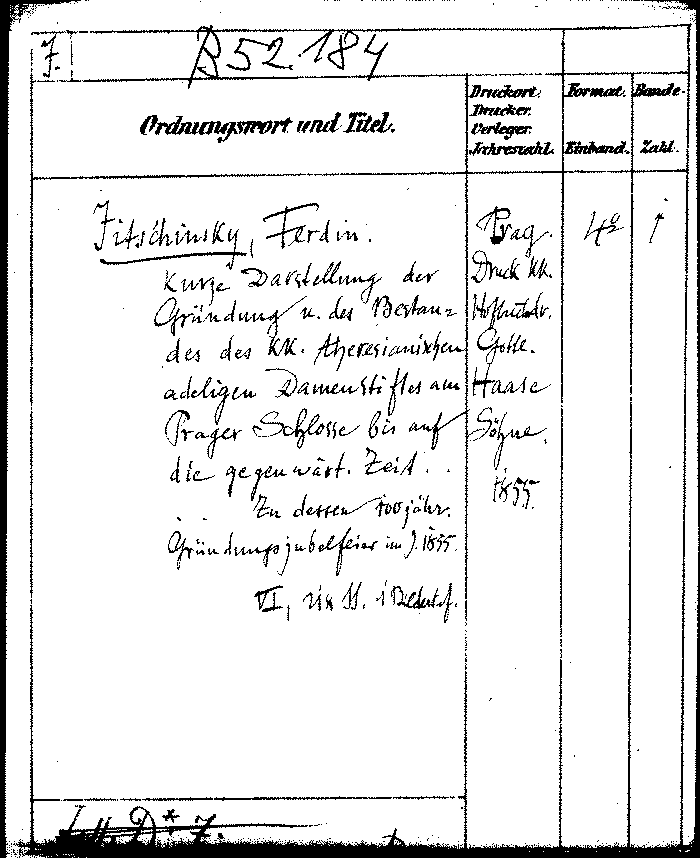 F.
B 52.184
Ordnungswort und Titel.
Druckort.
Drucker.
Verleger.
Jahreszahl.
Format.
Einband.
Bände-
Zahl.
Fitschinsky, Ferdin.
Kurze Darstellung der
Gründung u. des Bestan=
des des KK. theresianischen
adeligen Damenstiftes am
Prager Schlosse bis auf
die gegenwärt. Zeit . .
Zu dessen 100jähr.
Gründungsjubelfeier im J. 1855.
VI, SS.
Prag.
Druck KK.
Hofbuchdr.
Gottl.
Haase
Söhne.
1855.
4º
1
D* 7.